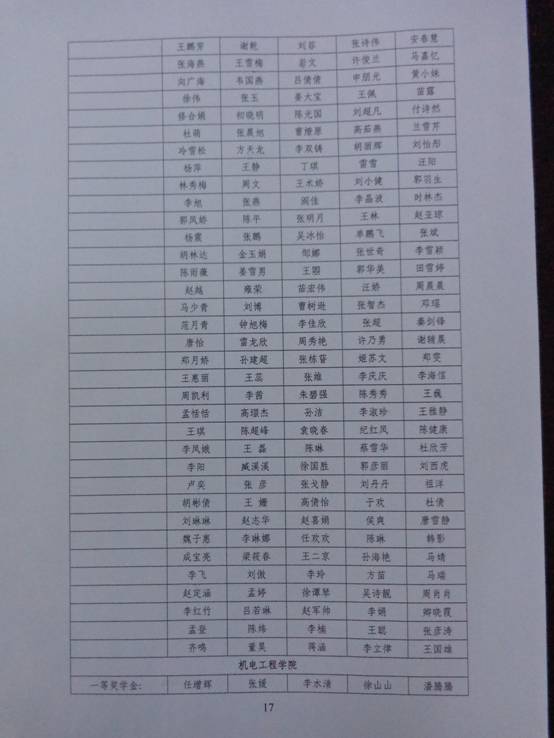 王鹏芳 谢乾 刘蓉 张诗伟 安春慧
张海燕 王雪梅 彭文 许俊兰 马嘉忆
向广海 韦国燕 吕倩倩 申朋光 黄小妹
徐伟 张玉 姜大宝 王佩 苗露
修台娟 初晓明 陈光国 刘超凡 付诗然
杜萌 张晨旭 曹燎原 高茹燕 兰雪芹
冷雪松 方天龙 李双铸 胡丽辉 刘怡彤
杨萍 王静 丁琪 雷雪 汪阳
林秀梅 周文 王木娇 刘小健 郭羽生
李旭 张燕 阎佳 李晶波 时林杰
郭凤娇 陈平 张明月 王林 赵亚琼
杨震 张鹏 吴冰怡 单鹏飞 张斌
胡林达 金玉娟 邹娜 张世奇 李雪颖
陈雨薇 姜雪男 郭华美 田雪婷
赵越 雍荣 苗宏伟 汪娇 周晨晨
马少青 刘博 曹树逊 张智杰 邓瑶
范月青 钟旭梅 李佳欣 张超 秦剑锋
唐怡 雷龙欣 周秀艳 许乃勇 谢辅晨
郑月娇 孙建超 张栋蓓 姬苏文 郑雯
王惠丽 王蕊 张雄 李庆庆 李海信
周凯利 李茜 朱碧强 陈秀秀 王巍
孟恬恬 高璟杰 孙洁 李淑珍 王雅静
王琪 陈超峰 袁晓春 纪红凤 陈健康
李凤娥 王磊 陈琳 蔡雪华 杜欣芳
李阳 臧溪溪 徐国胜 郭彦丽 刘西虎
卢奕 张彦 张戈静 刘丹丹 祖洋
胡彬倩 王姗 高倩怡 于欢 杜倩
刘琳琳 赵志华 赵喜娟 侯爽 唐雪静
魏子惠 李琳娜 任欢欢 陈琳 韩影
成宝亮 梁筱春 王二京 孙海艳 马婧
李飞 刘傲 李玲 方苗 马瑞
赵定涵 孟婷 徐谭琴 吴诗靓 周肖肖
李红竹 吕若琳 赵军帅 李娟 卿晓霞
孟登 陈炜 李楠 王聪 张彦涛
齐鸣 董昊 蒋涵 李立律 王国雄
机电工程学院
一等奖学金: 任增辉 张媛 李水清 徐山山 潘腾腾
17